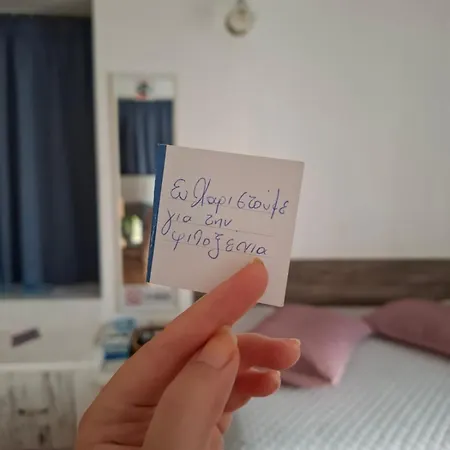 Ευχαριστούμε
για την
φιλοξενια